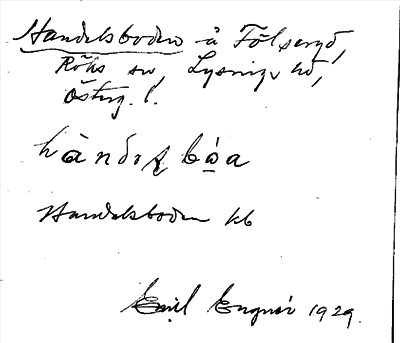 Handelsboden å Fölseryd,
Röks sn, Lysings hd,
Österg. l.
hàndəɬ bóa
Handelsboden kb
Emil Engnér 1929.